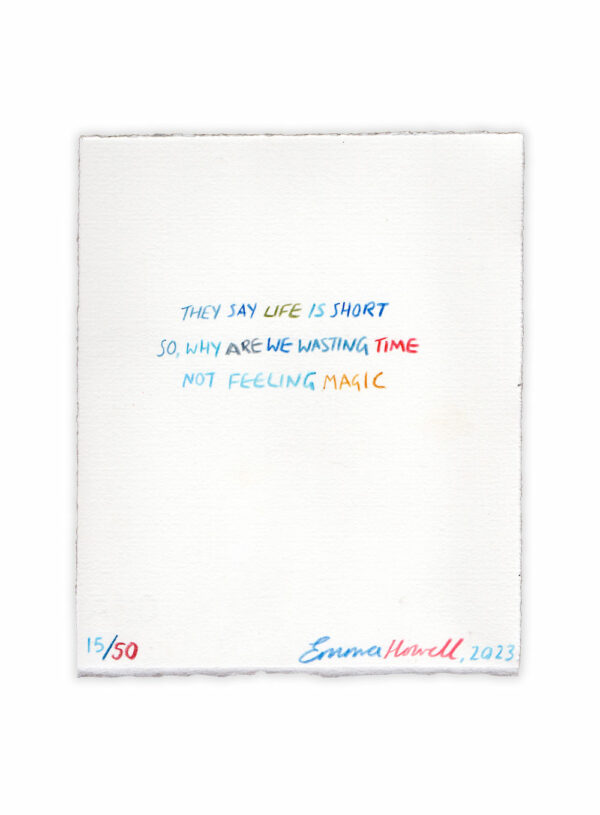 THEY SAY LIFE IS SHORT
SO, WHY ARE WE WASTING TIME
NOT FEELING MAGIC
15/50
Emma Howell, 2023